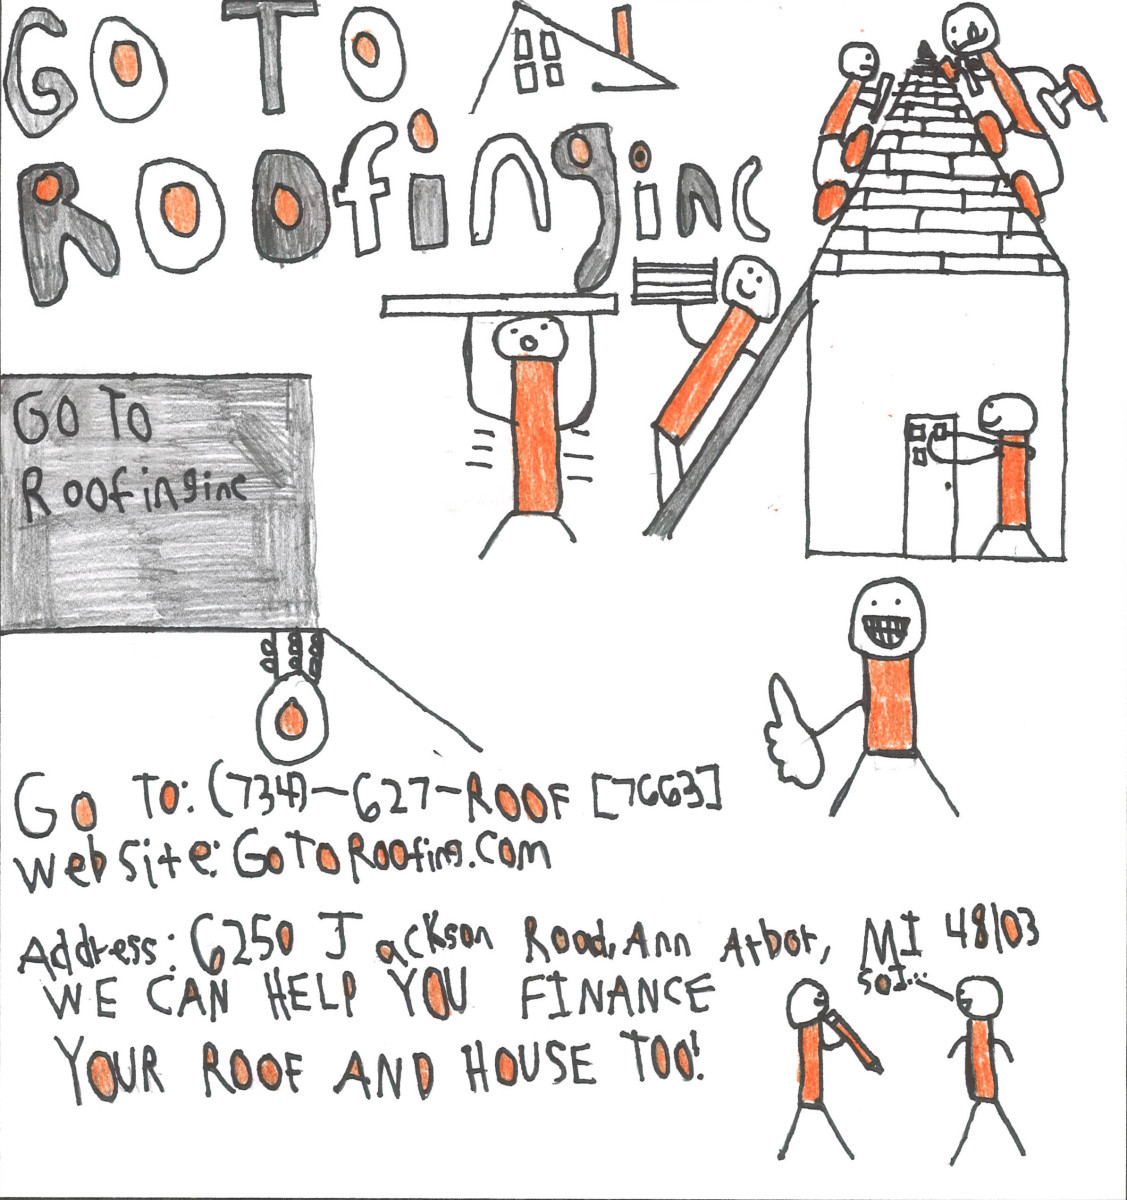 GO TO
Roofing inc
GO TO
Roofinginc
Go To: (734)-627-ROOF [7663]
website: GoToRoofing.com
Address: 6250 Jackson Road, Ann Arbor, MI 48103
SOI...
WE CAN HELP YOU FINANCE
YOUR ROOF AND HOUSE TOO!